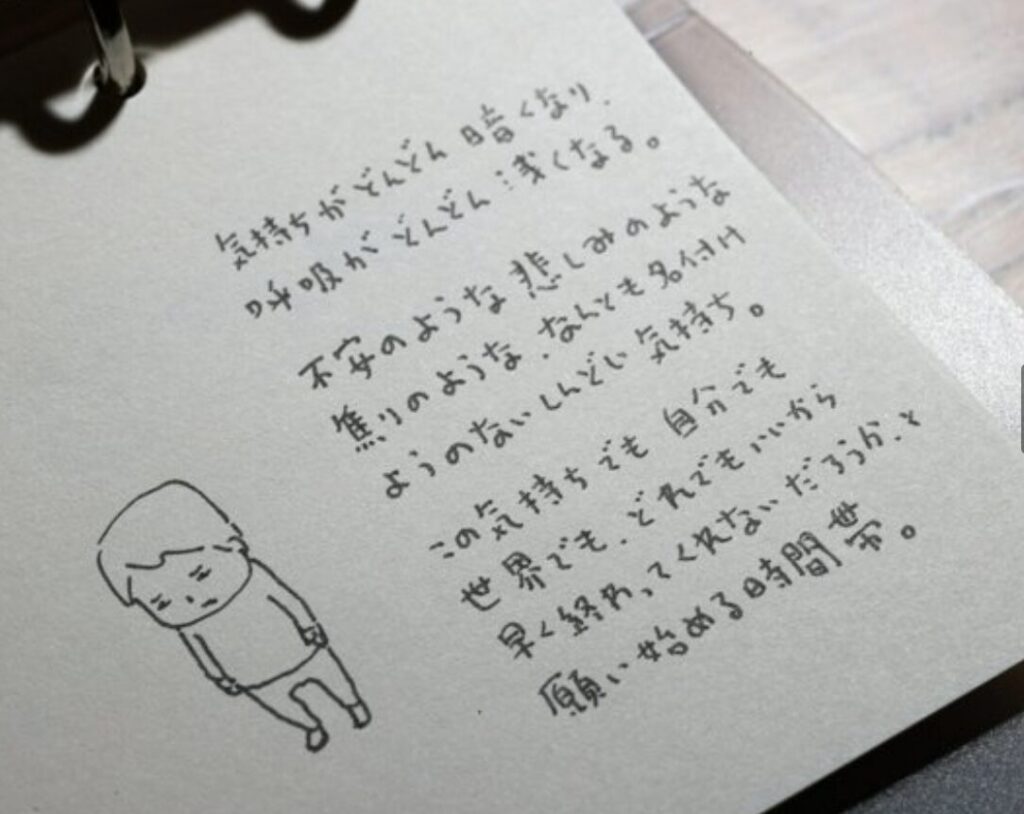 気持ちがどんどん暗くなり、
呼吸がどんどん浅くなる。
不安のような悲しみのような
焦りのような、なんとも名付け
ようのないしんどい気持ち。
この気持ちでも自分でも
世界でも、どれでもいいから
早く終わってくれないだろうか、と
願い始める時間帯。